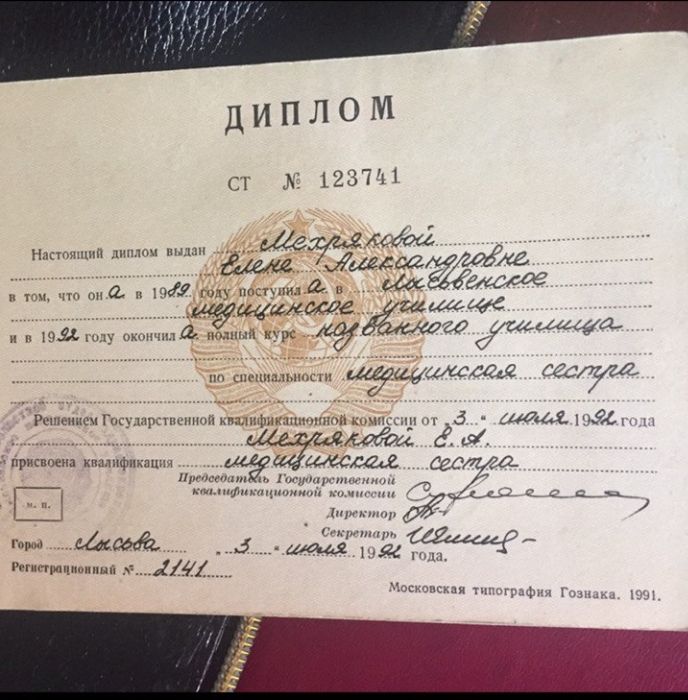 ДИПЛОМ
СТ № 123741
Настоящий диплом выдан Мехряковой
Елене Александровне
в том, что она в 1989 году поступила в Лысьвенское
медицинское училище
и в 1992 году окончила полный курс названного училища
по специальности медицинская сестра
Решением Государственной квалификационной комиссии от "3" июля 1992 года
Мехряковой Е. А.
присвоена квалификация медицинская сестра
Председатель Государственной
квалификационной комиссии
м. п.
Директор
Секретарь
Город Лысьва "3" июля 1992 года.
Регистрационный № 2141
Московская типография Гознака. 1991.